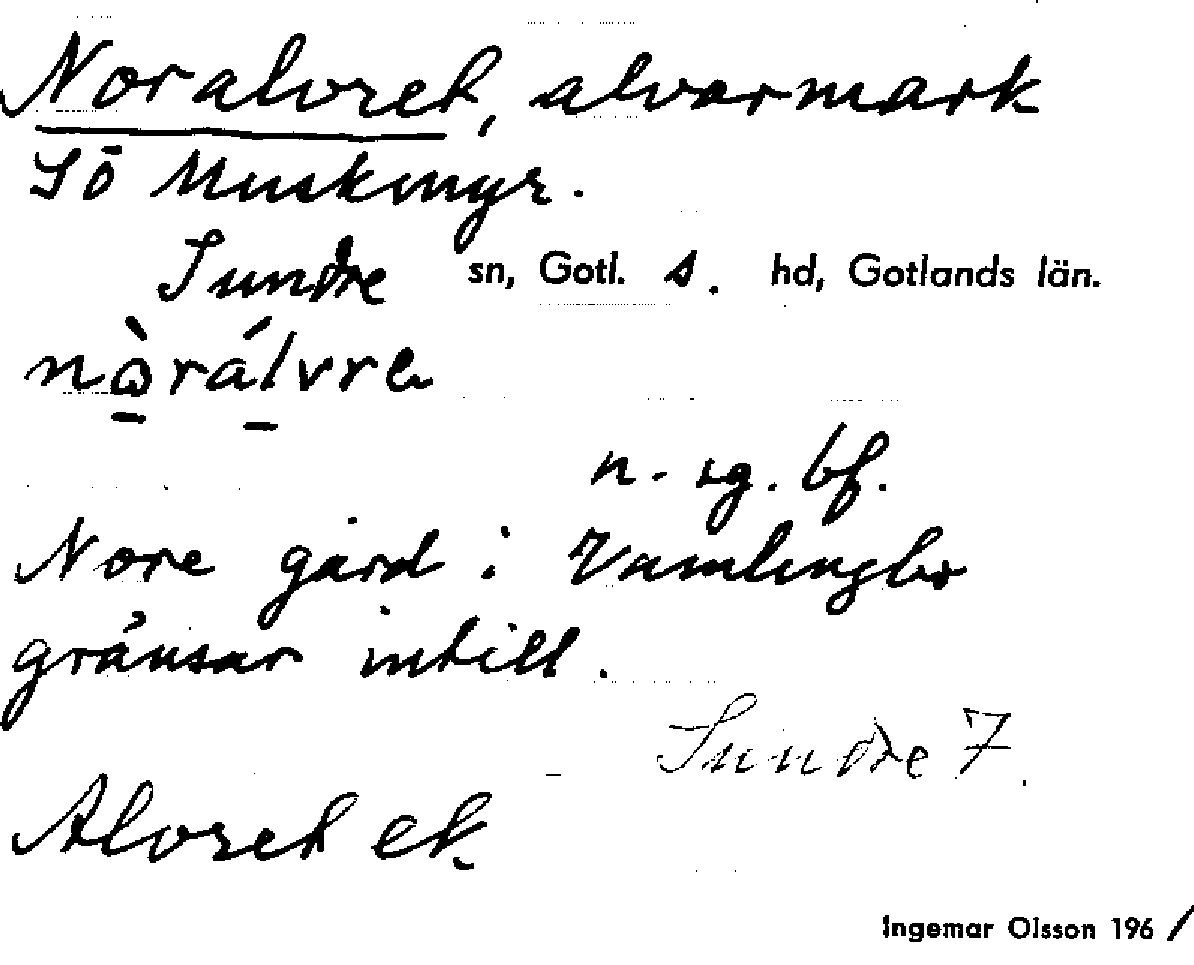 Noralvret, alvarmark
SÖ Muskmyr.
Sundre sn, Gotl. s. hd, Gotlands län.
nò̱rá̱lvre
n. sg. bf.
Nore gård i Vamlingbo
gränsar intill.
Sundre 7.
Alvret ek
Ingemar Olsson 1961